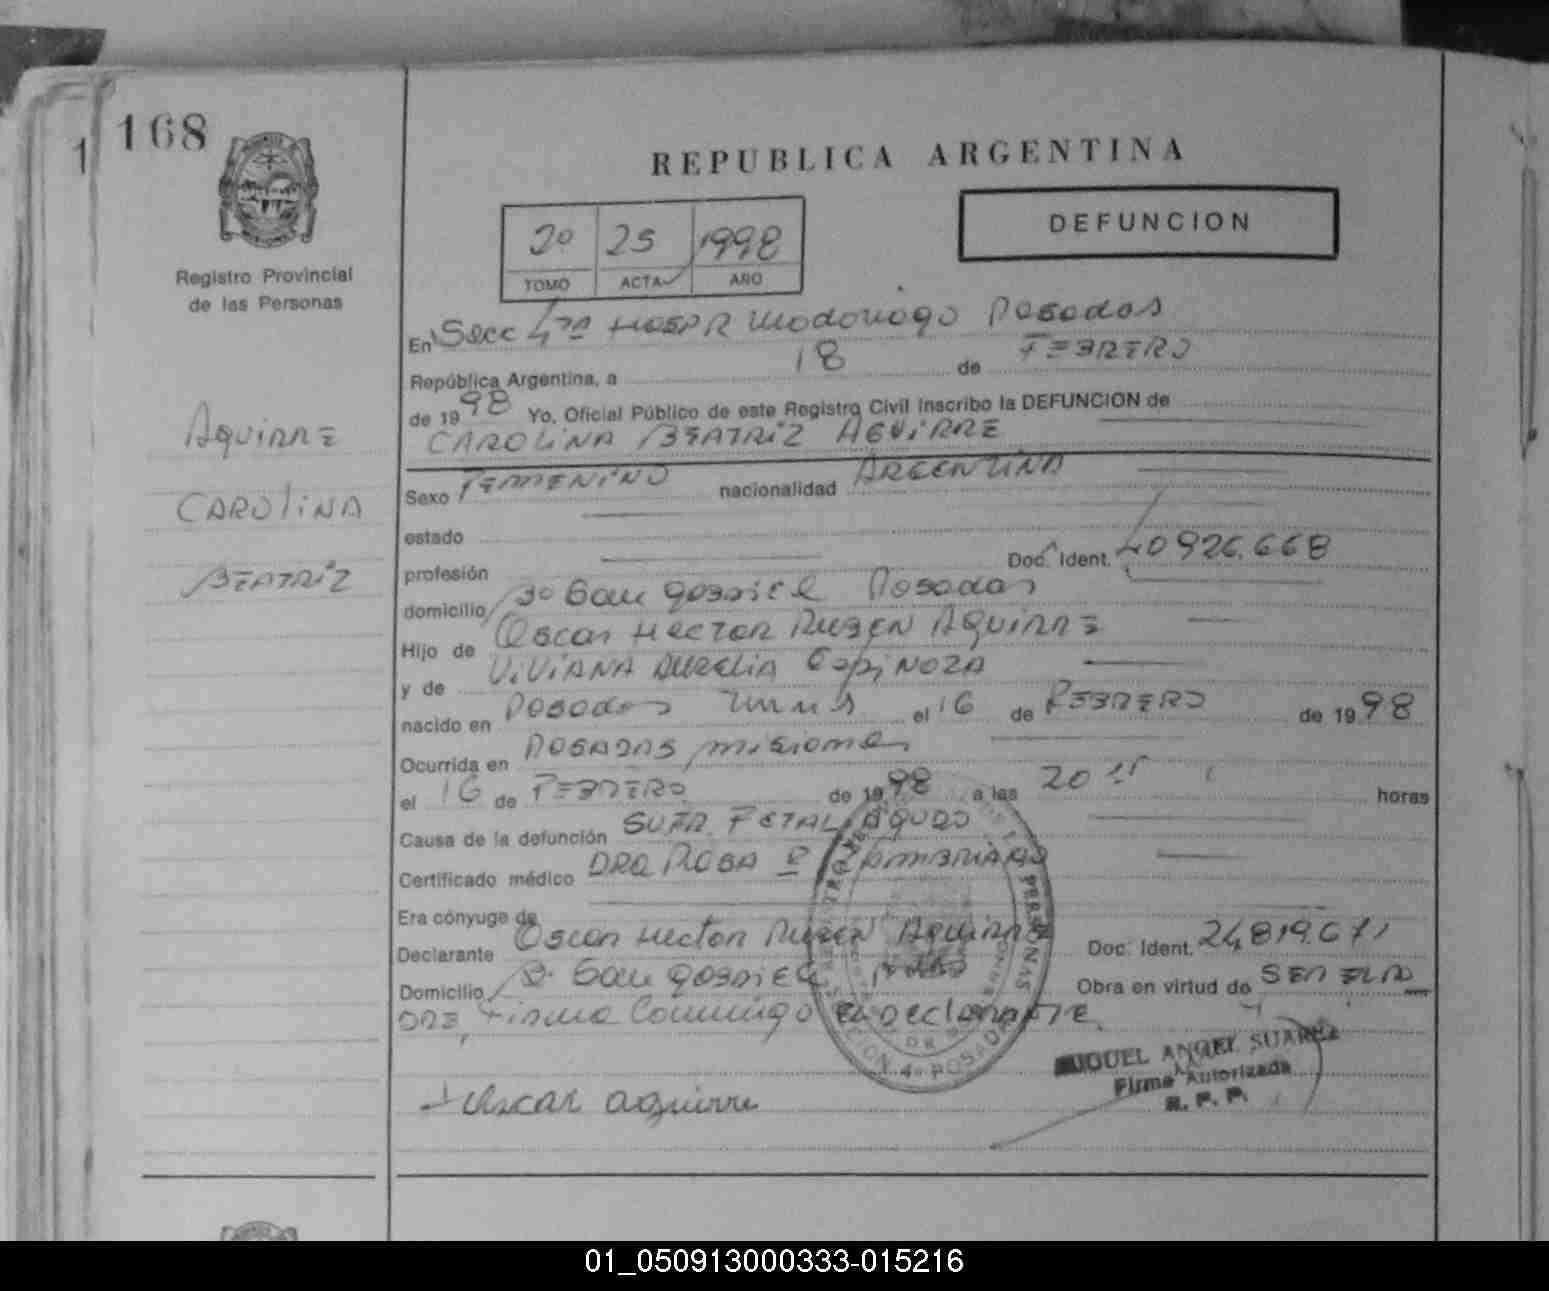 168
1
REPUBLICA ARGENTINA
DEFUNCION
2º 25 1998
TOMO ACTA AÑO
Registro Provincial
de las Personas
AGUIRRE
CAROLINA
BEATRIZ
En Secc 4ta HOSPR Posadas
República Argentina, a 18 de FEBRERO
de 1998 Yo, Oficial Público de este Registro Civil inscribo la DEFUNCION de
CAROLINA BEATRIZ AGUIRRE
Sexo FEMENINO nacionalidad ARGENTINA
estado
profesión Doc. Ident. 40926.668
domicilio Bº San Gabriel Posadas
Hijo de Oscar Hector Ruben Aguirre
y de VIVIANA AURELIA ESPINOZA
nacido en Posadas Mnes el 16 de FEBRERO de 1998
Ocurrida en POSADAS, misiones
el 16 de FEBRERO de 1998 a las 20 15 horas
Causa de la defunción SUFR. FETAL AGUDO
Certificado médico DRA ROSA E ZAMBRANO
Era cónyuge de
Declarante Oscar Hector Ruben Aguirre Doc. Ident. 24,819.671
Domicilio B. San Gabriel Obra en virtud de SER EL PA
DRE, Firma Conmigo El Declarante
Oscar aguirre
MIGUEL ANGEL SUAREZ
Firma Autorizada
R. P. P.
01_050913000333-015216